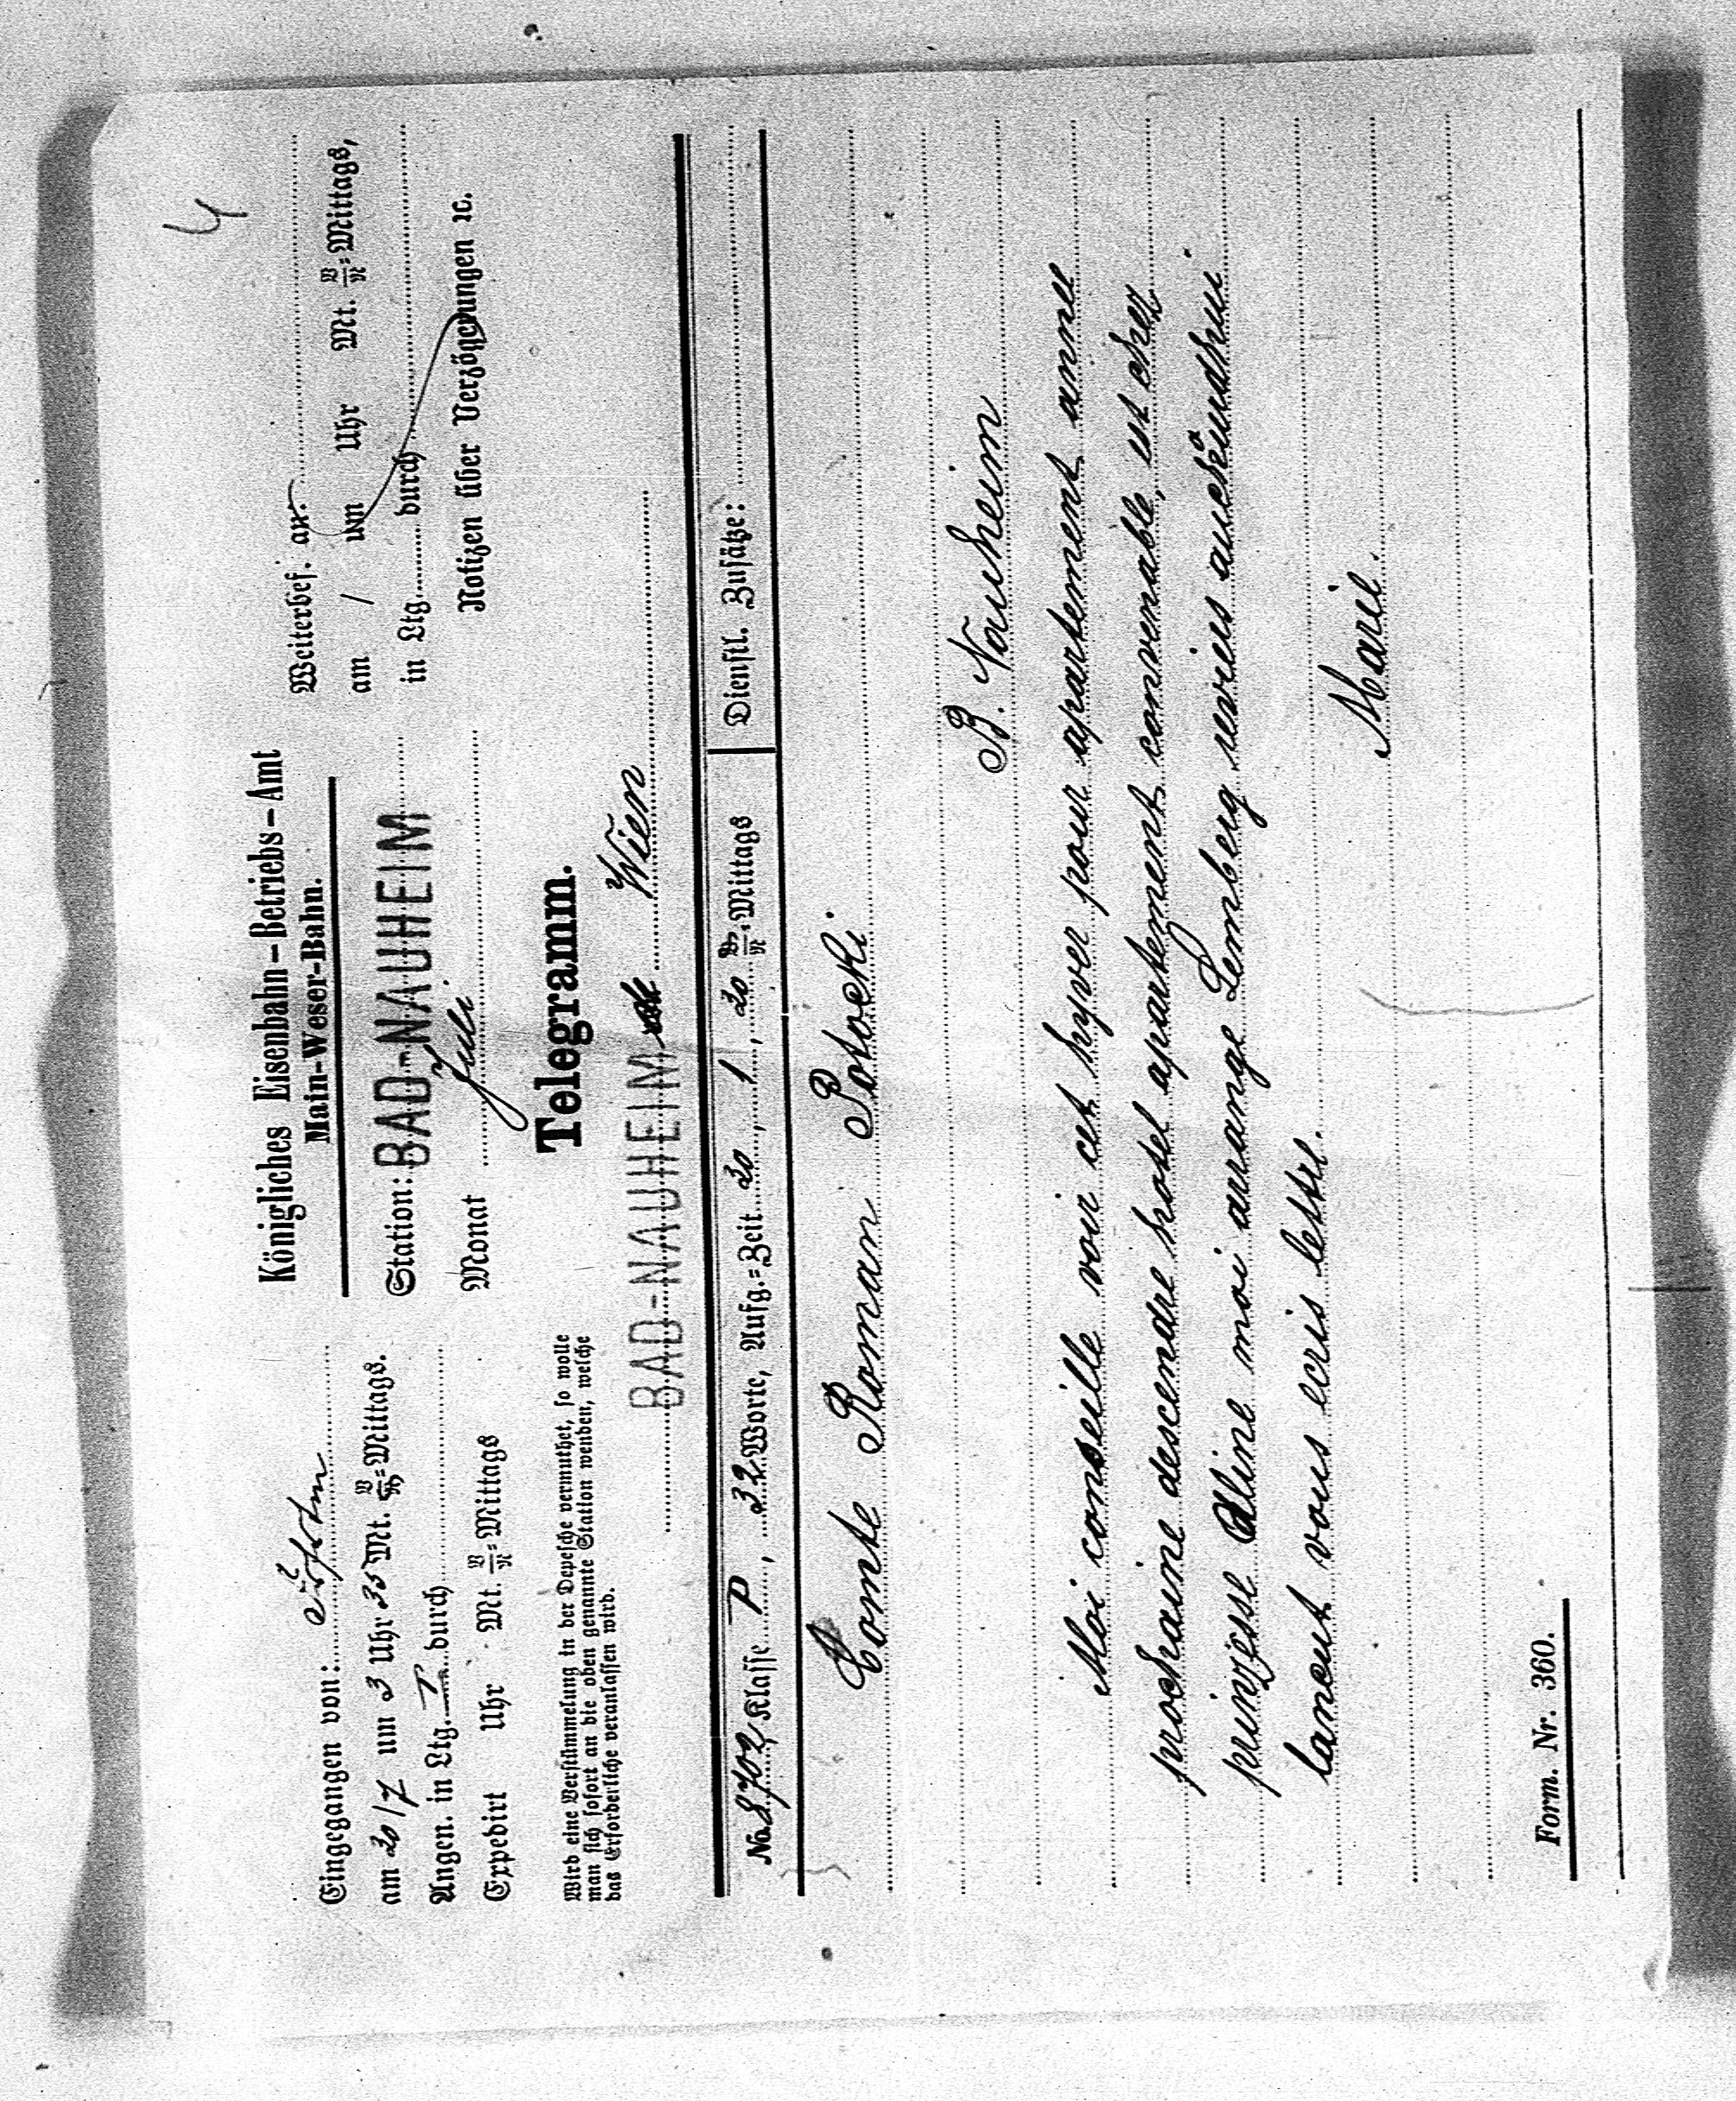 4
Königliches Eisenbahn-Betriebs-Amt
Main-Weser-Bahn.
Eingegangen von:
am 20/7 um 3 Uhr 35 Mt. V/N=Mittags.
Angen. in Ltg. durch
Expedirt Uhr Mt. V/N=Mittags
Station: BAD-NAUHEIM
Monat Juli
Weiterbef. an
am / um Uhr Mt. V/N=Mittags,
in Ltg. durch
Notizen über Verzögerungen ꝛc.
Wird eine Verstümmelung in der Depesche vermuthet, so wolle
man sich sofort an die oben genannte Station wenden, welche
das Erforderliche veranlassen wird.
Telegramm.
BAD-NAUHEIM Wien
No. 8702, Klasse P, 32 Worte, Aufg.=Zeit 20, 1, 20 V/N.Mittags Dienstl. Zusätze:
Comte Roman Potocki.
B. Nauheim
Moi conseille voir cet hyver pour apartement annee
prochaine descendre hotel apartement convenable, est chez
prinzesse Aline moi arrange Lemberg
lancut vous ecris lettre.
Marie.
Form. Nr. 360.